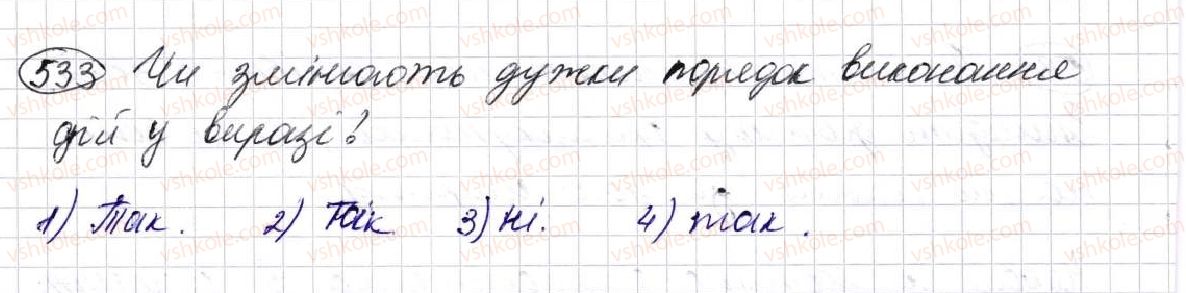 533 Чи змінюють дужки порядок виконання
дій у виразі?
1) Так. 2) Так 3) ні. 4) так.